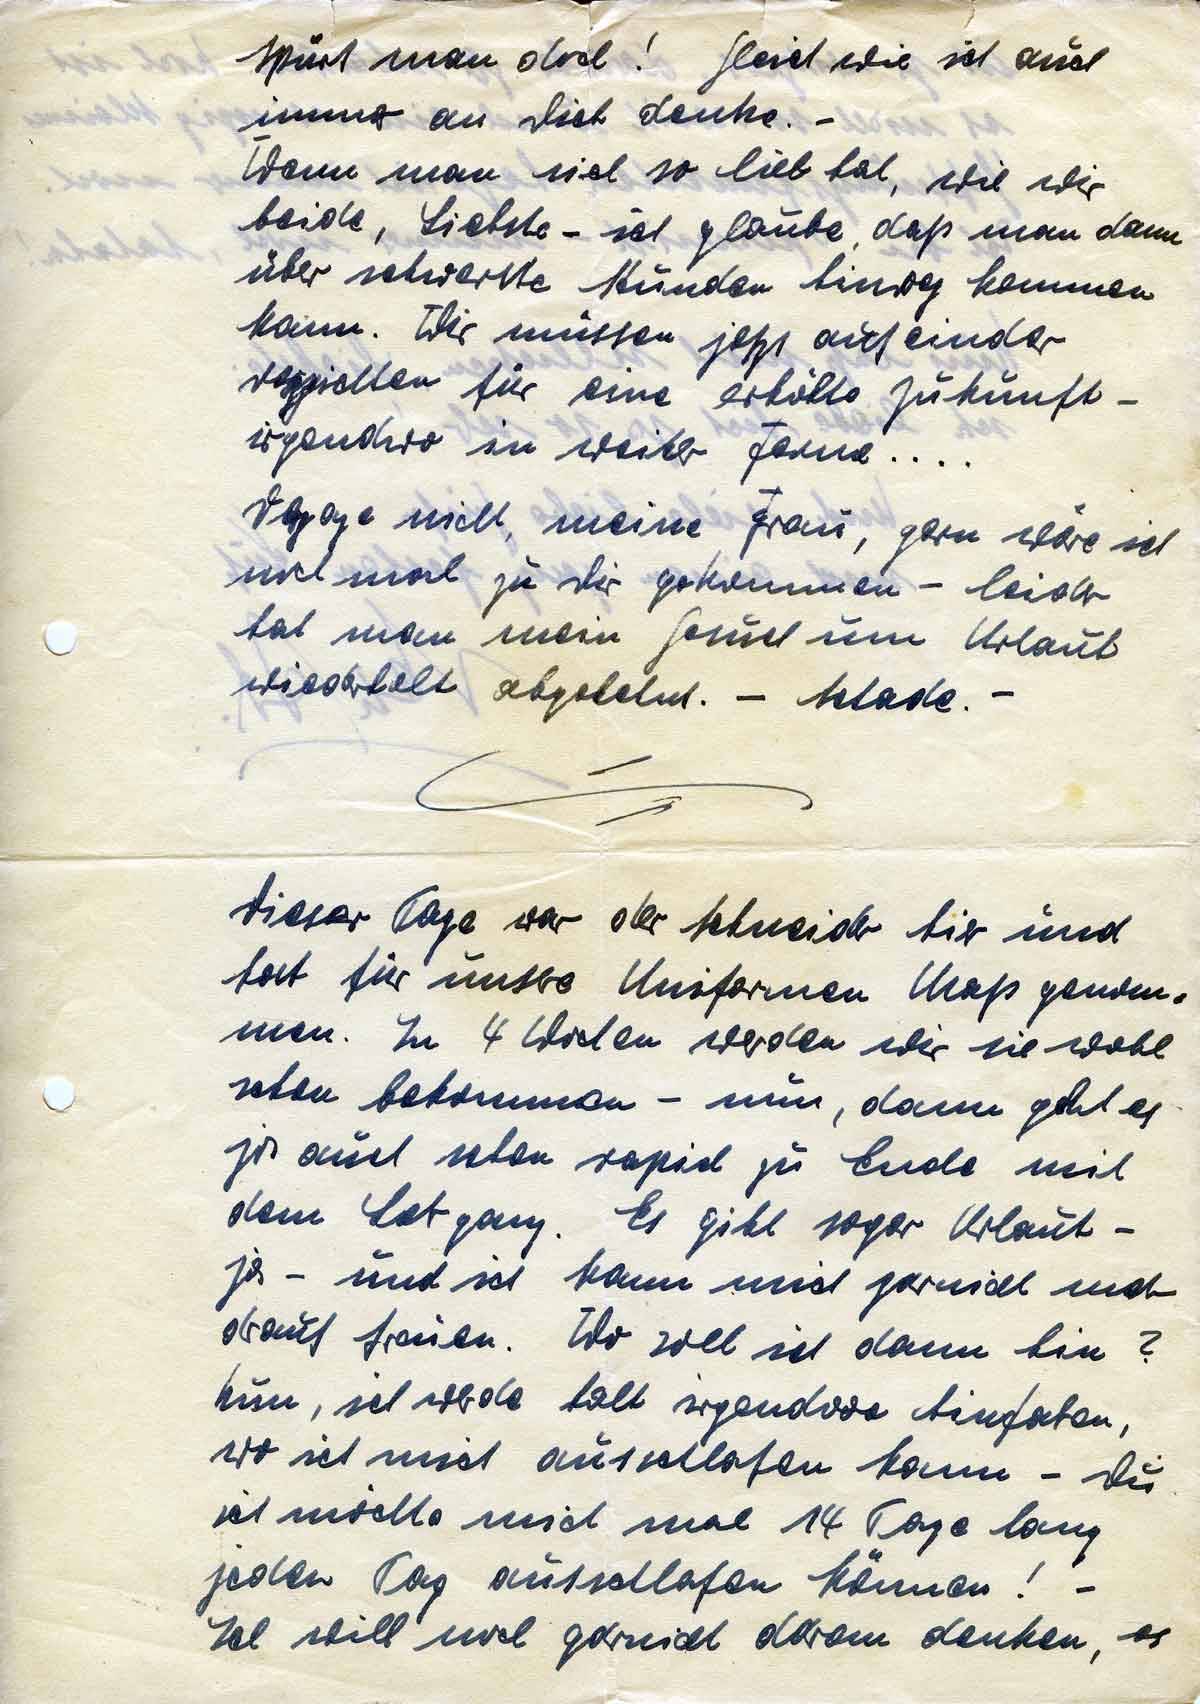 spürt man doch! Gleich wie ich auch
immer an Dich denke. –
Wenn man sich so lieb hat, wie wir
beide, Liebste – ich glaube, daß man dann
über schwerste Stunden hinweg kommen
kann. Wir müssen jetzt aufeinder
verzichten für eine erhöhte Zukunft –
irgendwo in weiter Ferne....
Verzage nicht, meine Frau, gern wäre ich
noch mal zu Dir gekommen – leider
hat man mein Gesuch um Urlaub
wiederholt abgelehnt. – Schade. –
Dieser Tage war der Schneider hier und
hat für unsre Uniformen Maß genom-
men. In 4 Wochen werden wir sie wohl
schon bekommen – nun, dann geht es
ja auch schon rapid zu Ende mit
dem Lehrgang. Es gibt sogar Urlaub –
ja – und ich kann mich garnicht
drauf freuen. Wo soll ich dann hin?
Nun, ich werde halt irgendwo hinfahren,
wo ich mich ausschlafen kann – Du
ich möchte mich mal 14 Tage lang
jeden Tag ausschlafen können! –
Ich will noch garnicht daran denken, es